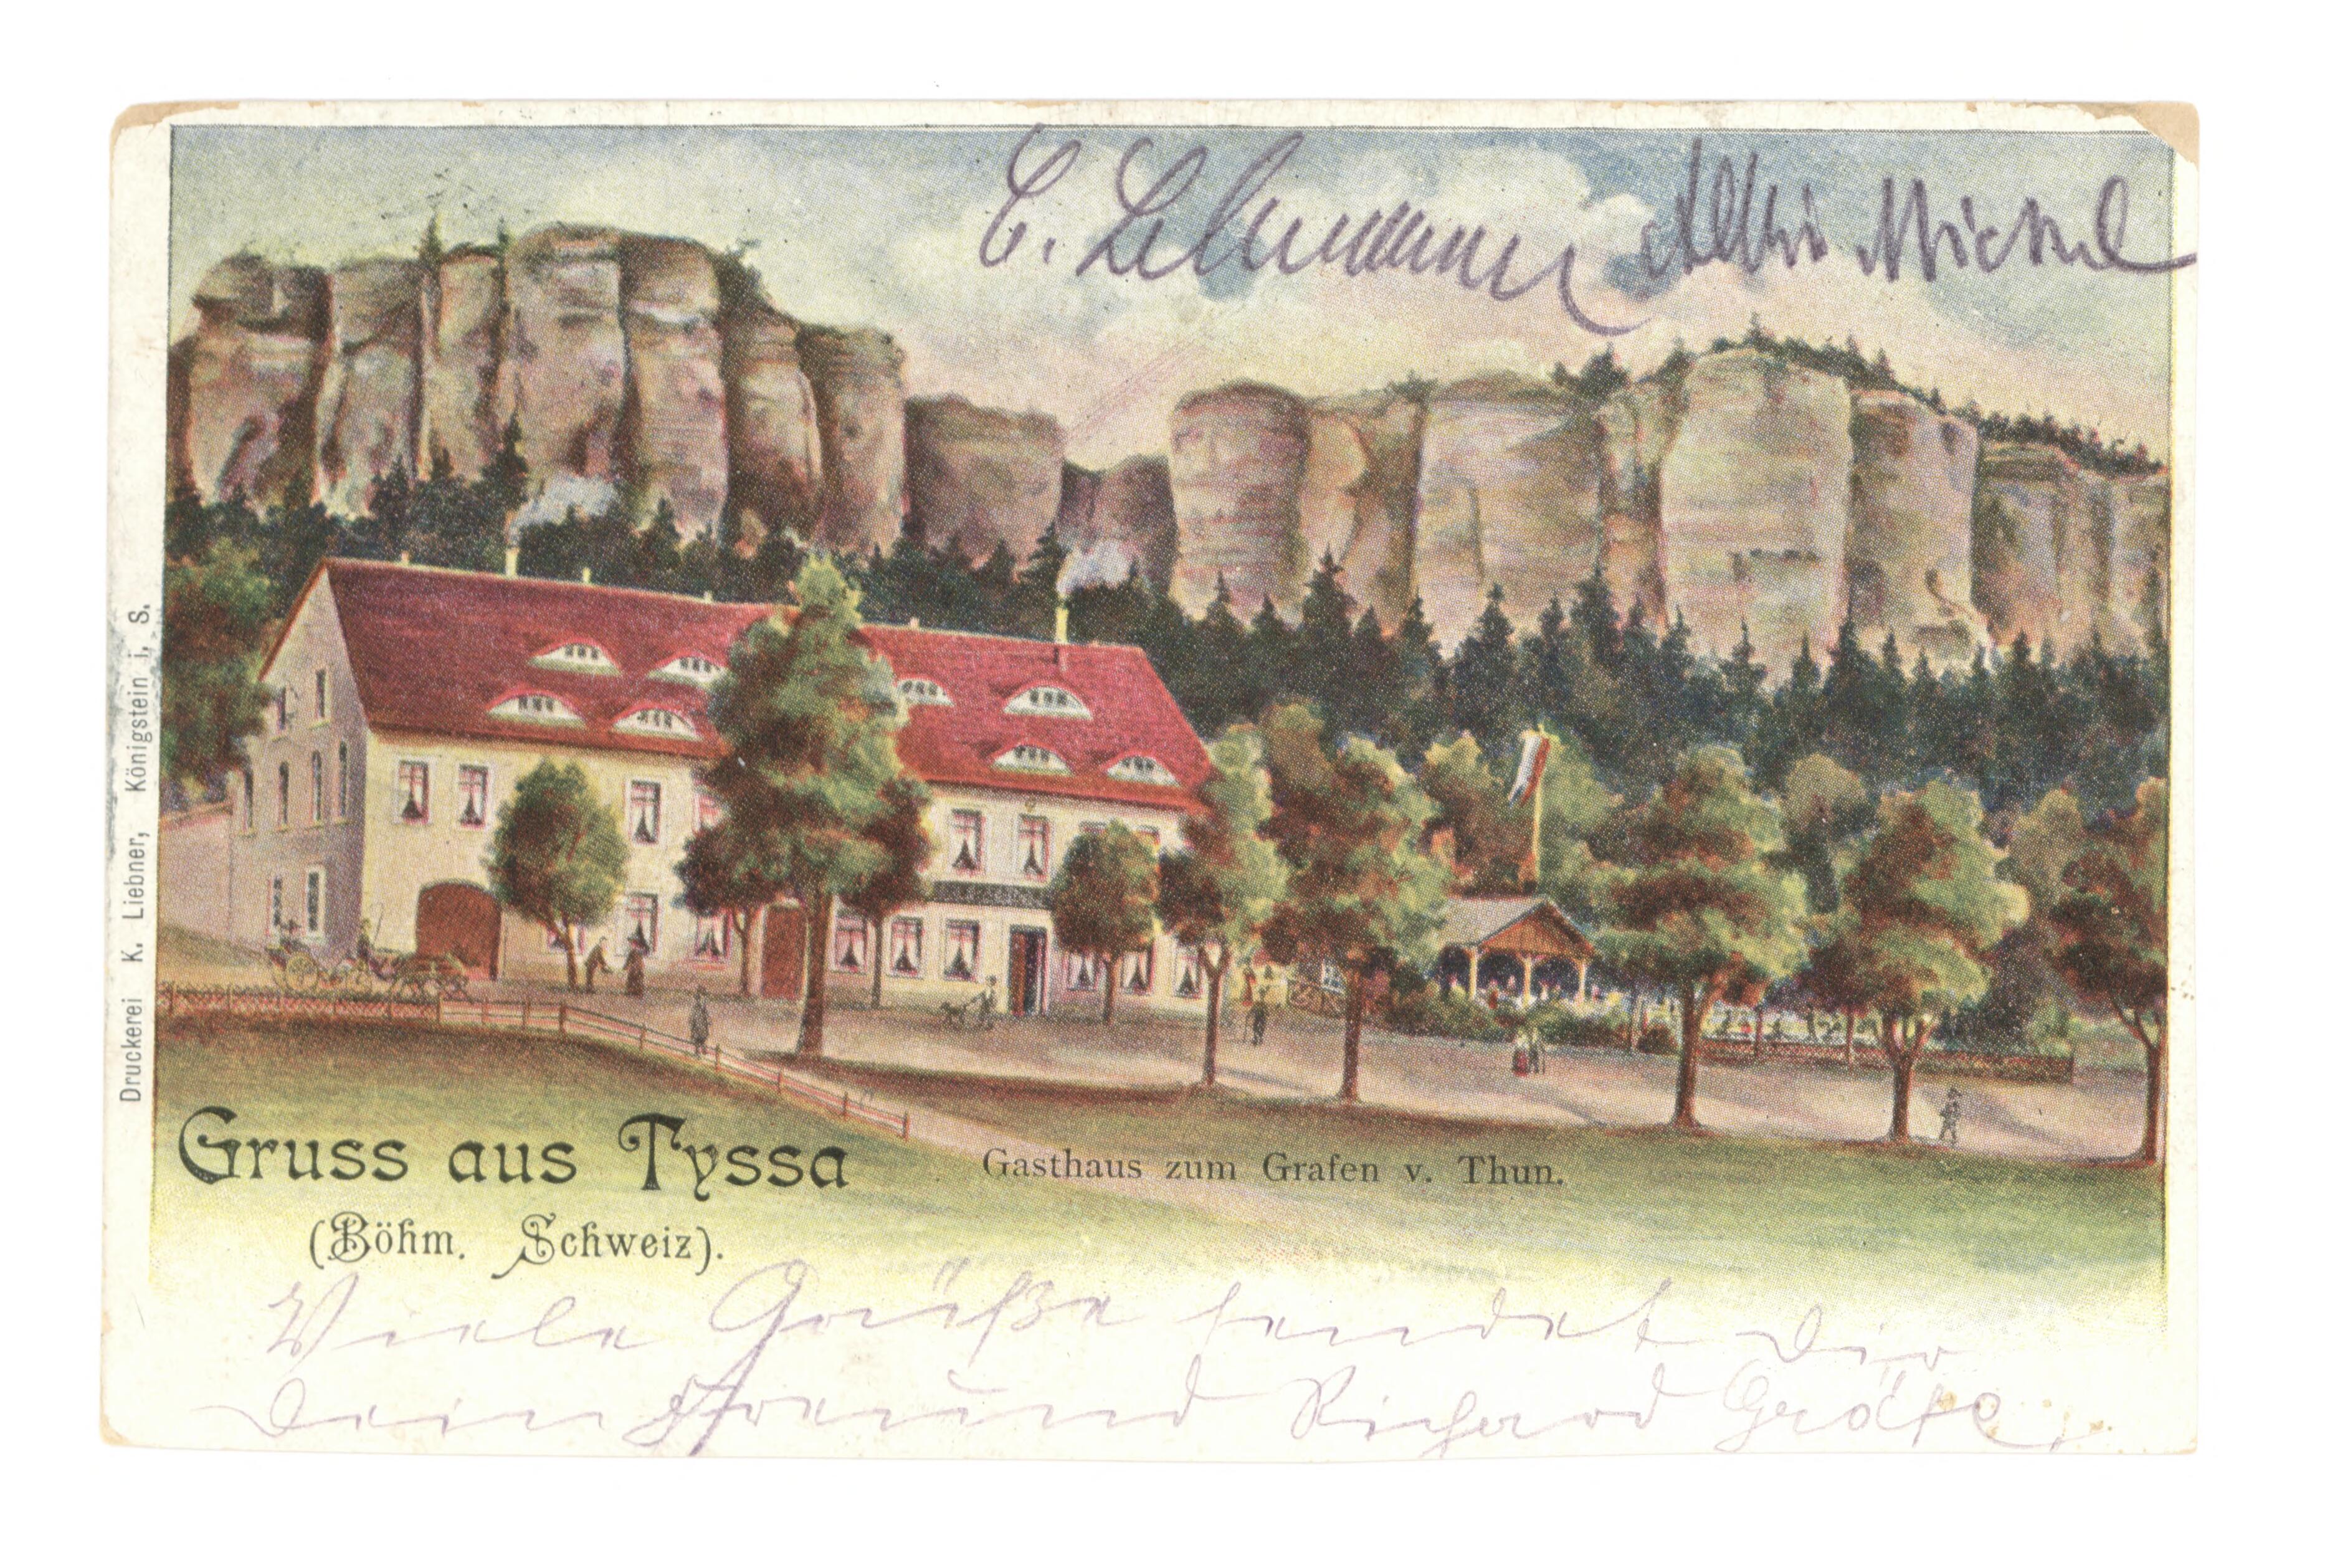 C. Lehmann Nickel
Druckerei K. Liebner, Königstein i. S.
Gruss aus Tyssa
Gasthaus zum Grafen v. Thun.
(Böhm. Schweiz).
Viele Grüße sendet Dir
Dein Freund Richard Gräfe.